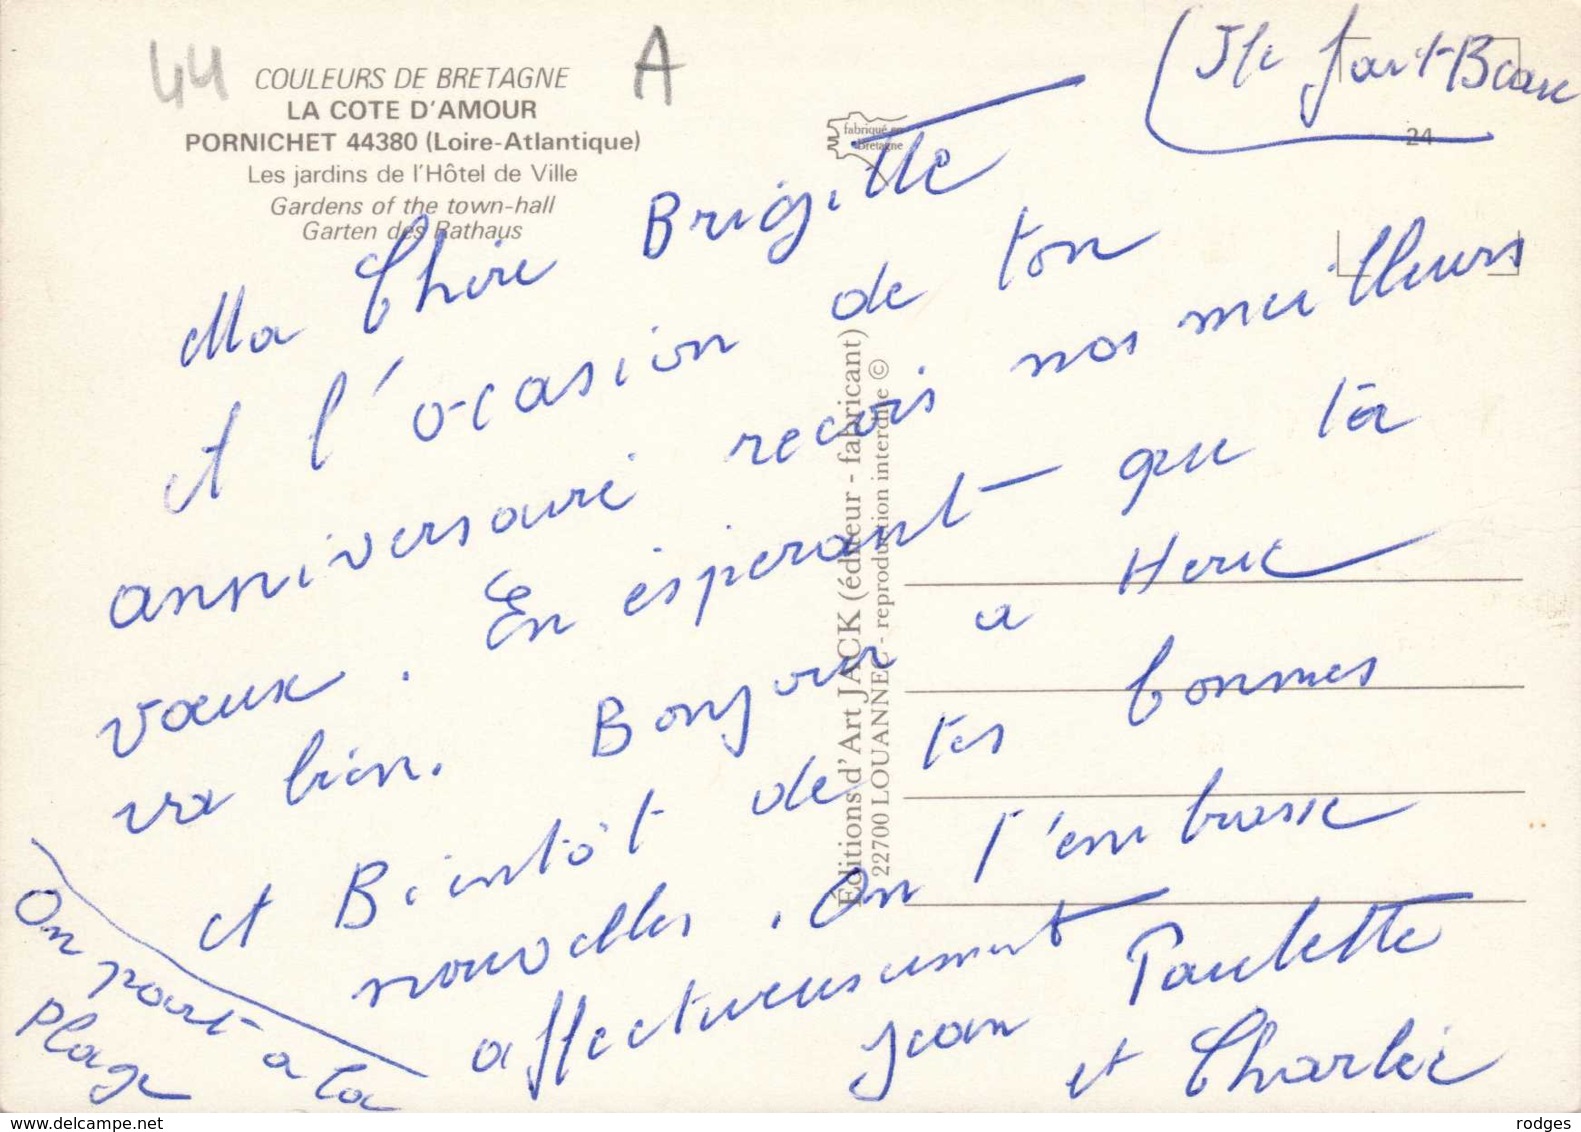 44
A
COULEURS DE BRETAGNE
LA COTE D'AMOUR
PORNICHET 44380 (Loire-Atlantique)
Les jardins de l'Hôtel de Ville
Gardens of the town-hall
Garten des Rathaus
fabriqué en
Bretagne
24
Il fait Beau
Ma Chère Brigitte
A l'ocasion de ton
anniversaire recois nos meilleurs
vœux. En espérant que ta
va bien. Bonjour a Heric
et Bientôt de tes bonnes
nouvelles. On t'embrasse
affectueusement
Jean Paulette
et Charlie
On part a la
plage
Éditions d'Art JACK (éditeur - fabricant)
22700 LOUANNEC - reproduction interdite ©
delcampe.net
rodges